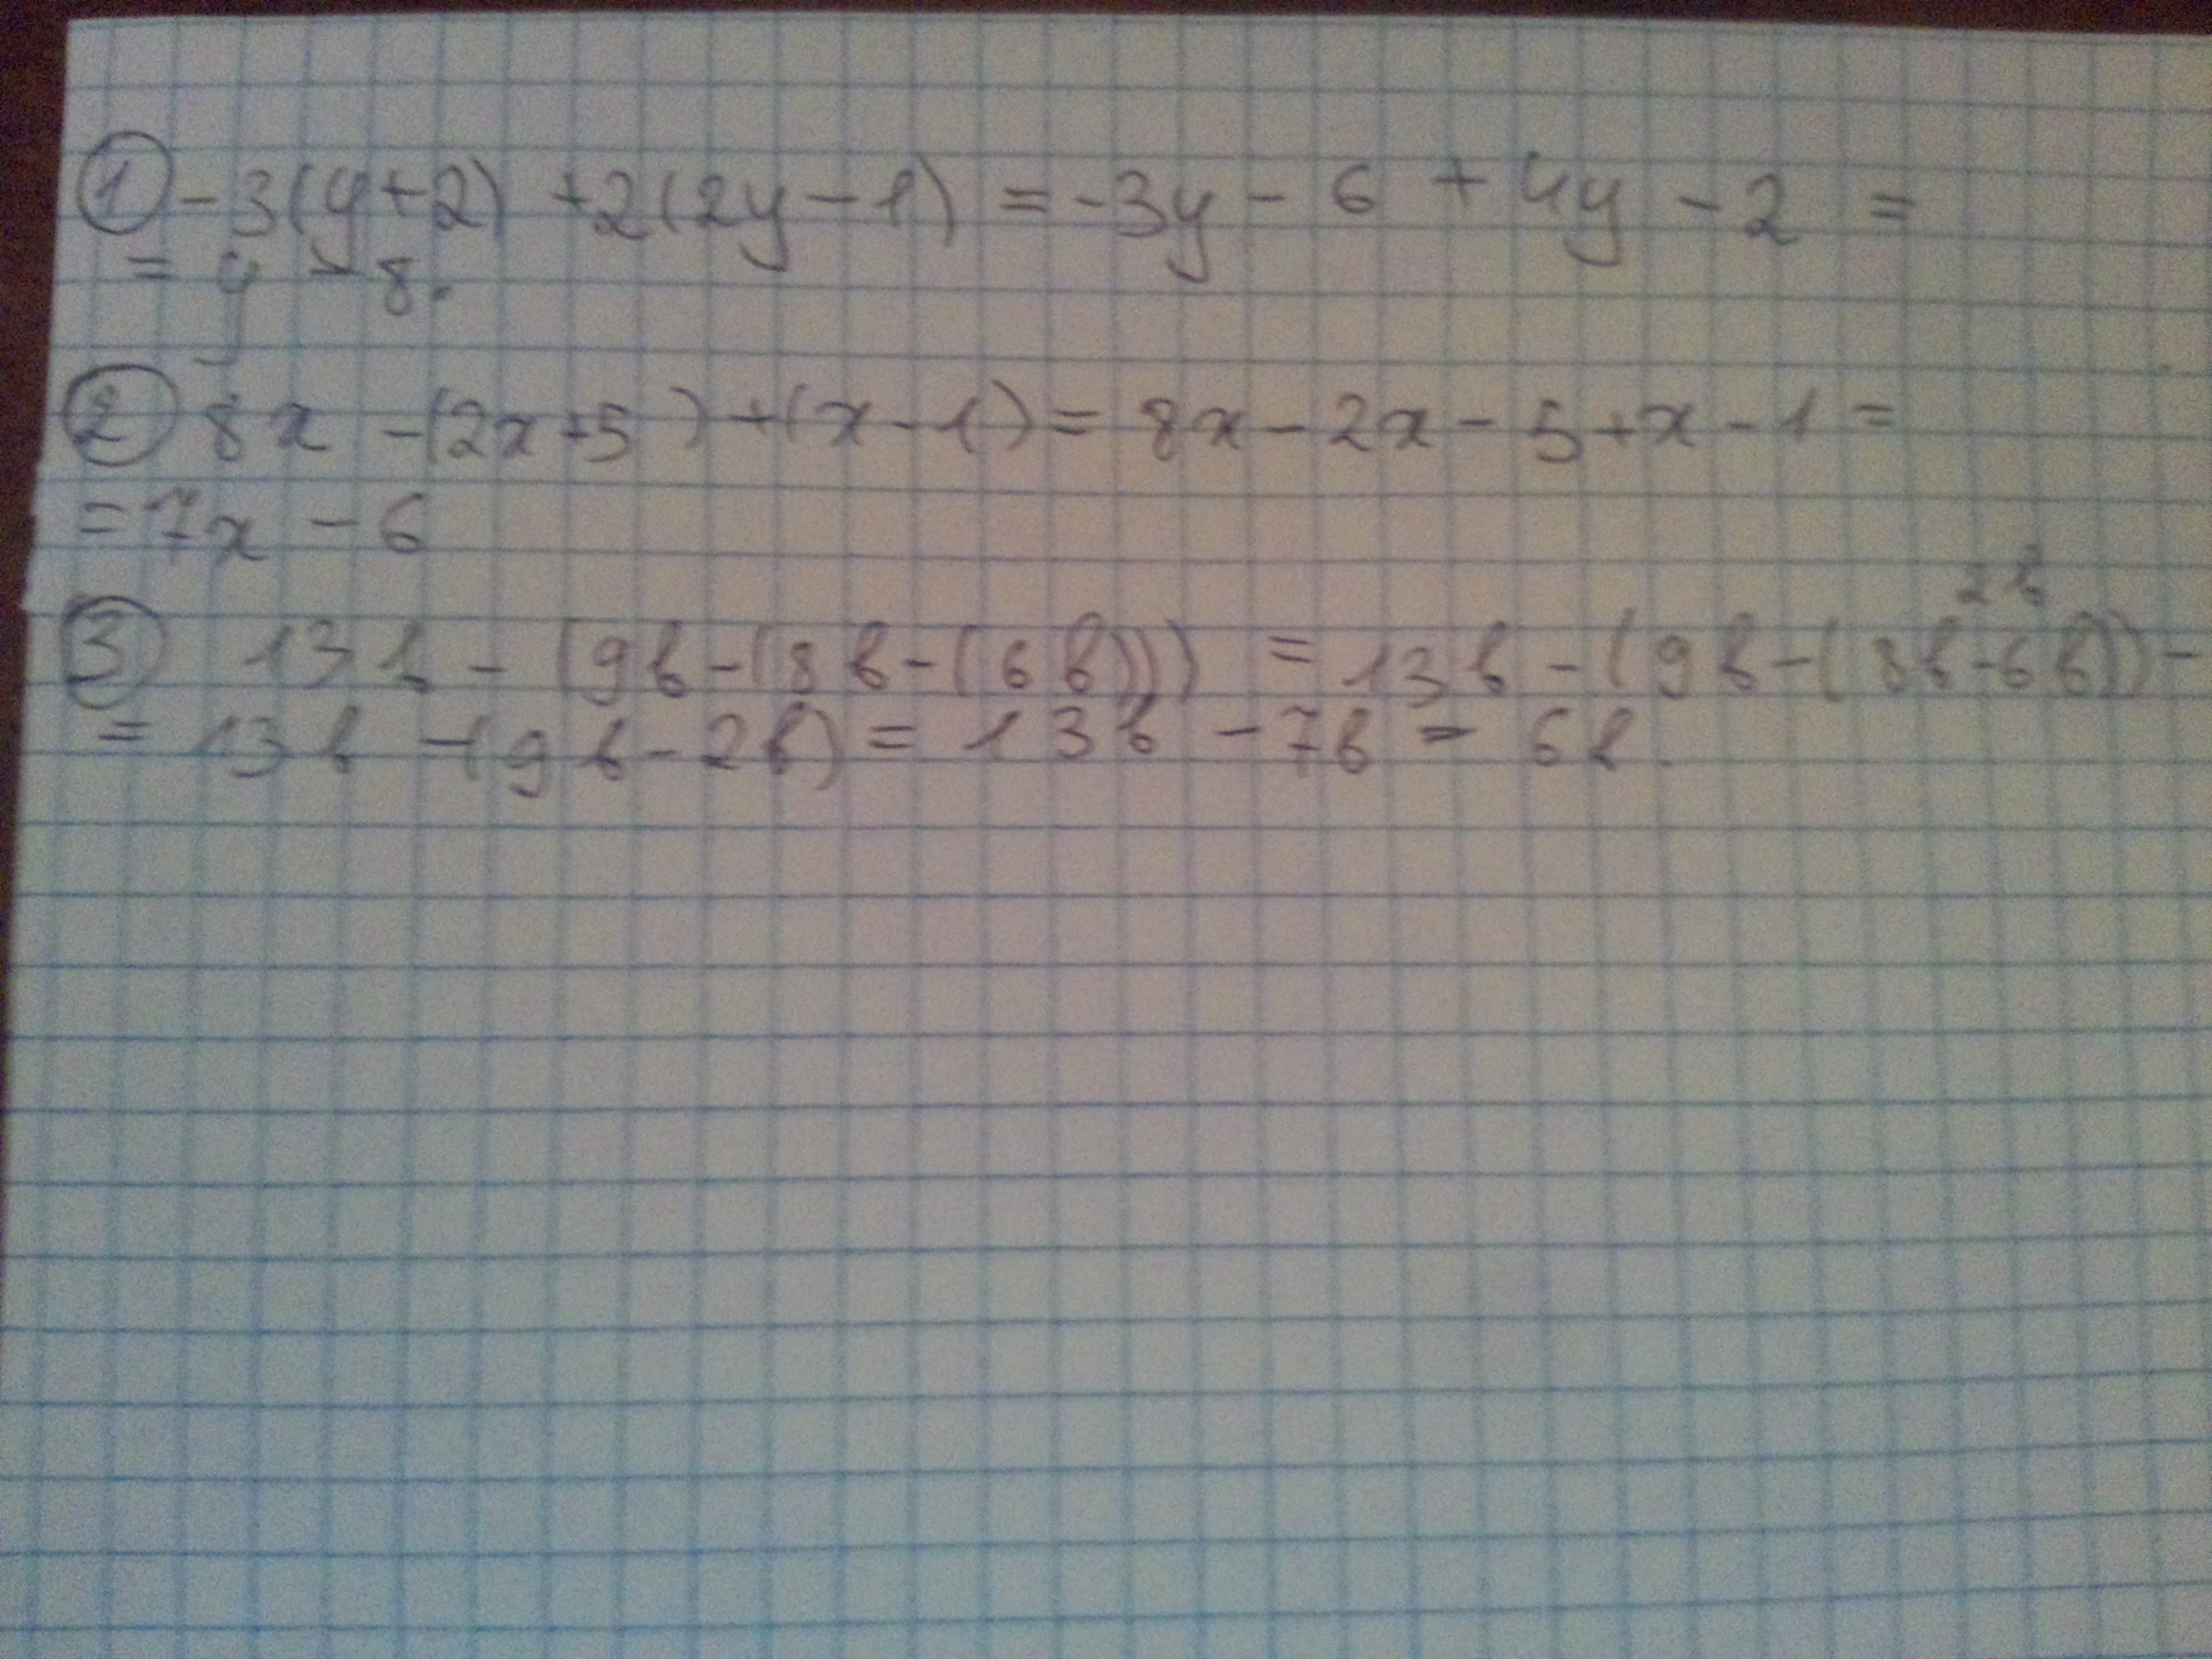 ① -3(y+2) +2(2y-1) = -3y - 6 + 4y - 2 =
= y - 8.
② 8x -(2x+5) +(x-1) = 8x - 2x - 5 + x - 1 =
= 7x - 6
2b
③ 13b - (9b-(8b-(6b))) = 13b - (9b-(8b-6b)) -
= 13b -(9b-2b) = 13b - 7b = 6b.